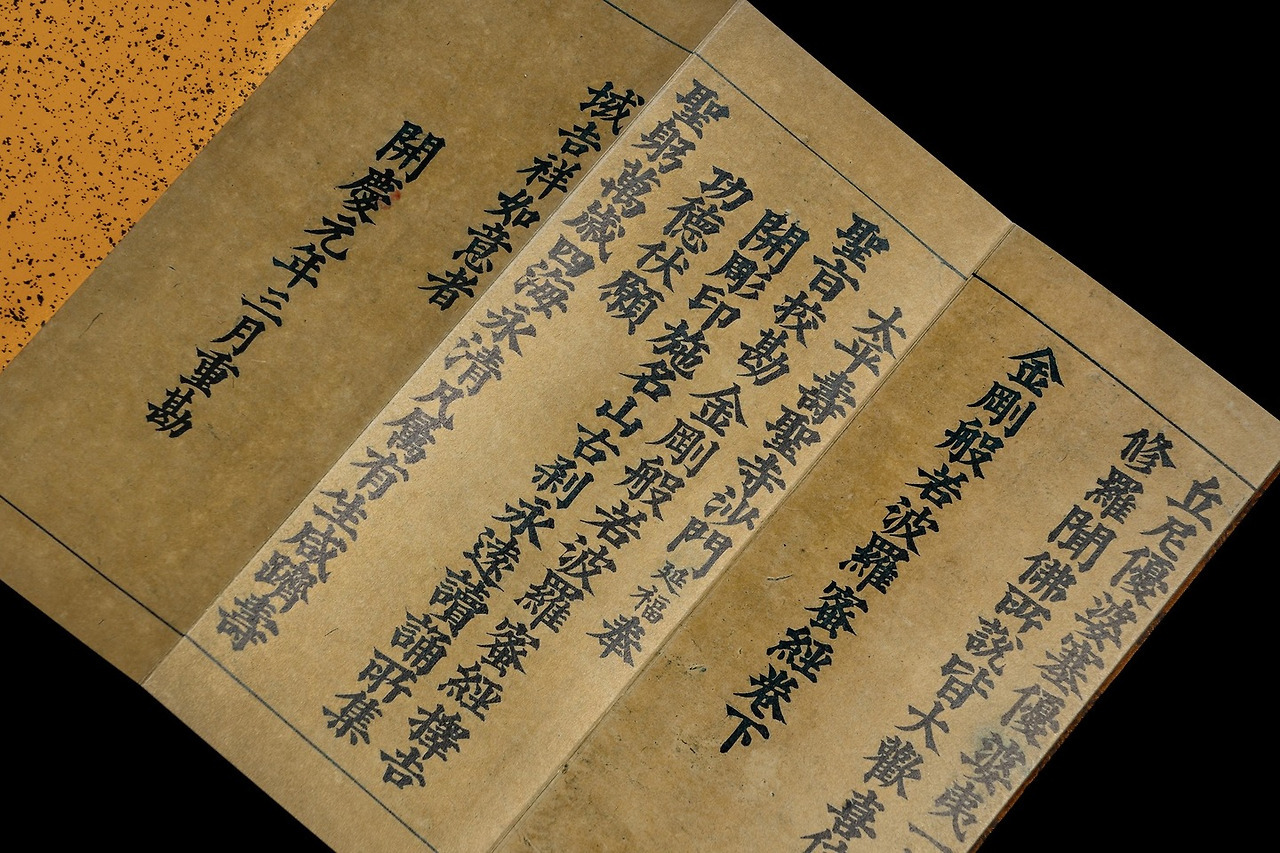 丘尼優婆塞優婆夷一
修羅聞佛所說皆大歡喜信
金剛般若波羅蜜經卷下
太平壽聖寺沙門延福奉
聖旨校勘金剛般若波羅蜜經擇吉
開彫印施名山古刹永遠讀誦所集
功德伏願
聖躬萬歲四海永清凡属有生咸躋壽
域吉祥如意者
開慶元年三月重勘